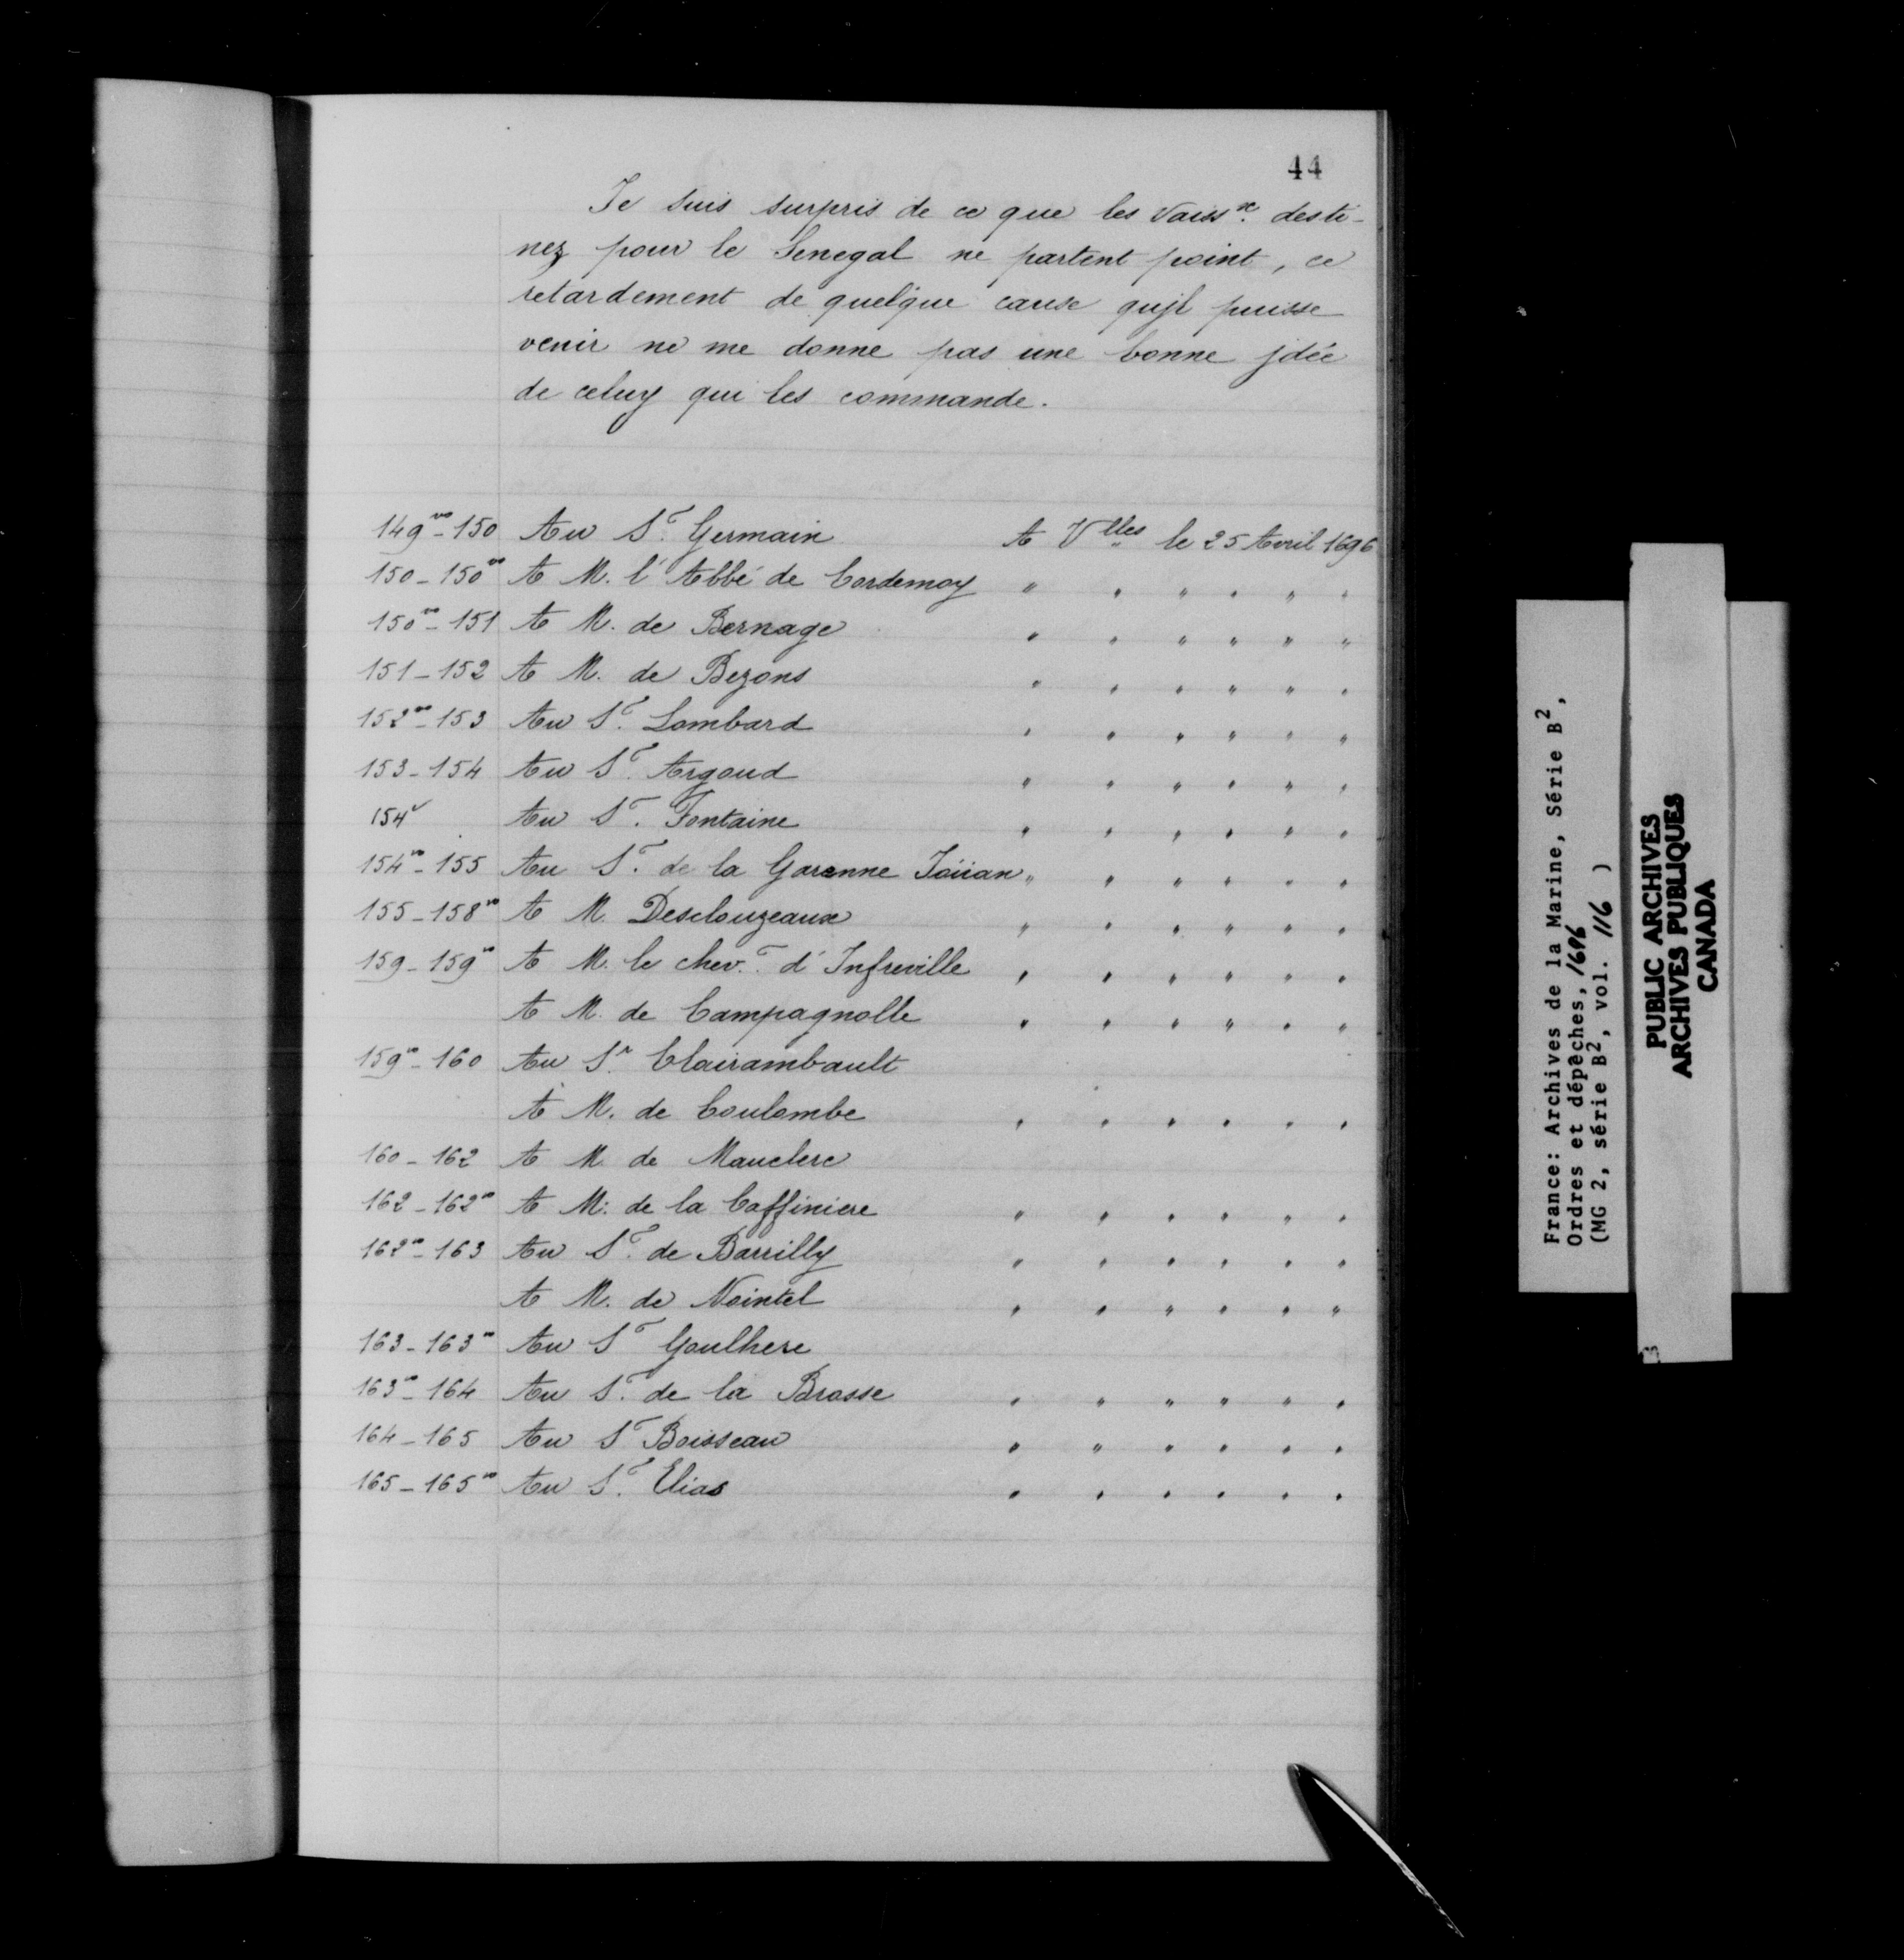 44
Je suis surpris de ce que les Vaiss.x desti-
nez pour le Senegal ne partent point, ce
retardement de quelque cause qujl puisse
venir ne me donne pas une bonne jdée
de celuy qui les commande.
149vo-150 Au Sr. Germain A Vlles le 25 Avril 1696
150-150vo A M. l'Abbé de Cordemoy " " " " " "
150vo-151 A M. de Bernage " " " " " "
151-152 A M. de Bezons " " " " " "
152vo-153 Au Sr. Lombard " " " " " "
153-154 Au Sr. Argoud " " " " " "
154v Au Sr. Fontaine " " " " " "
154vo-155 Au Sr. de la Garenne Joüan " " " " " "
155-158vo A M. Desclouzeaux " " " " " "
159-159vo A M. le chev.r d'Infreville " " " " " "
A M. de Campagnolle " " " " " "
159vo-160 Au Sr. Clairambault
A M. de Coulombe " " " " " "
160-162 A M. de Mauclerc
162-162vo A M. de la Caffiniere " " " " " "
162vo-163 Au Sr. de Barrilly " " " " " "
A M. de Nointel " " " " " "
163-163vo Au Sr Goulhere
163vo-164 Au Sr. de la Brosse " " " " " "
164-165 Au Sr Boisseau " " " " " "
165-165vo Au Sr. Elias " " " " " "
France: Archives de la Marine, Série B2,
Ordres et dépêches, 1696
(MG 2, série B2, vol. 116 )
PUBLIC ARCHIVES
ARCHIVES PUBLIQUES
CANADA